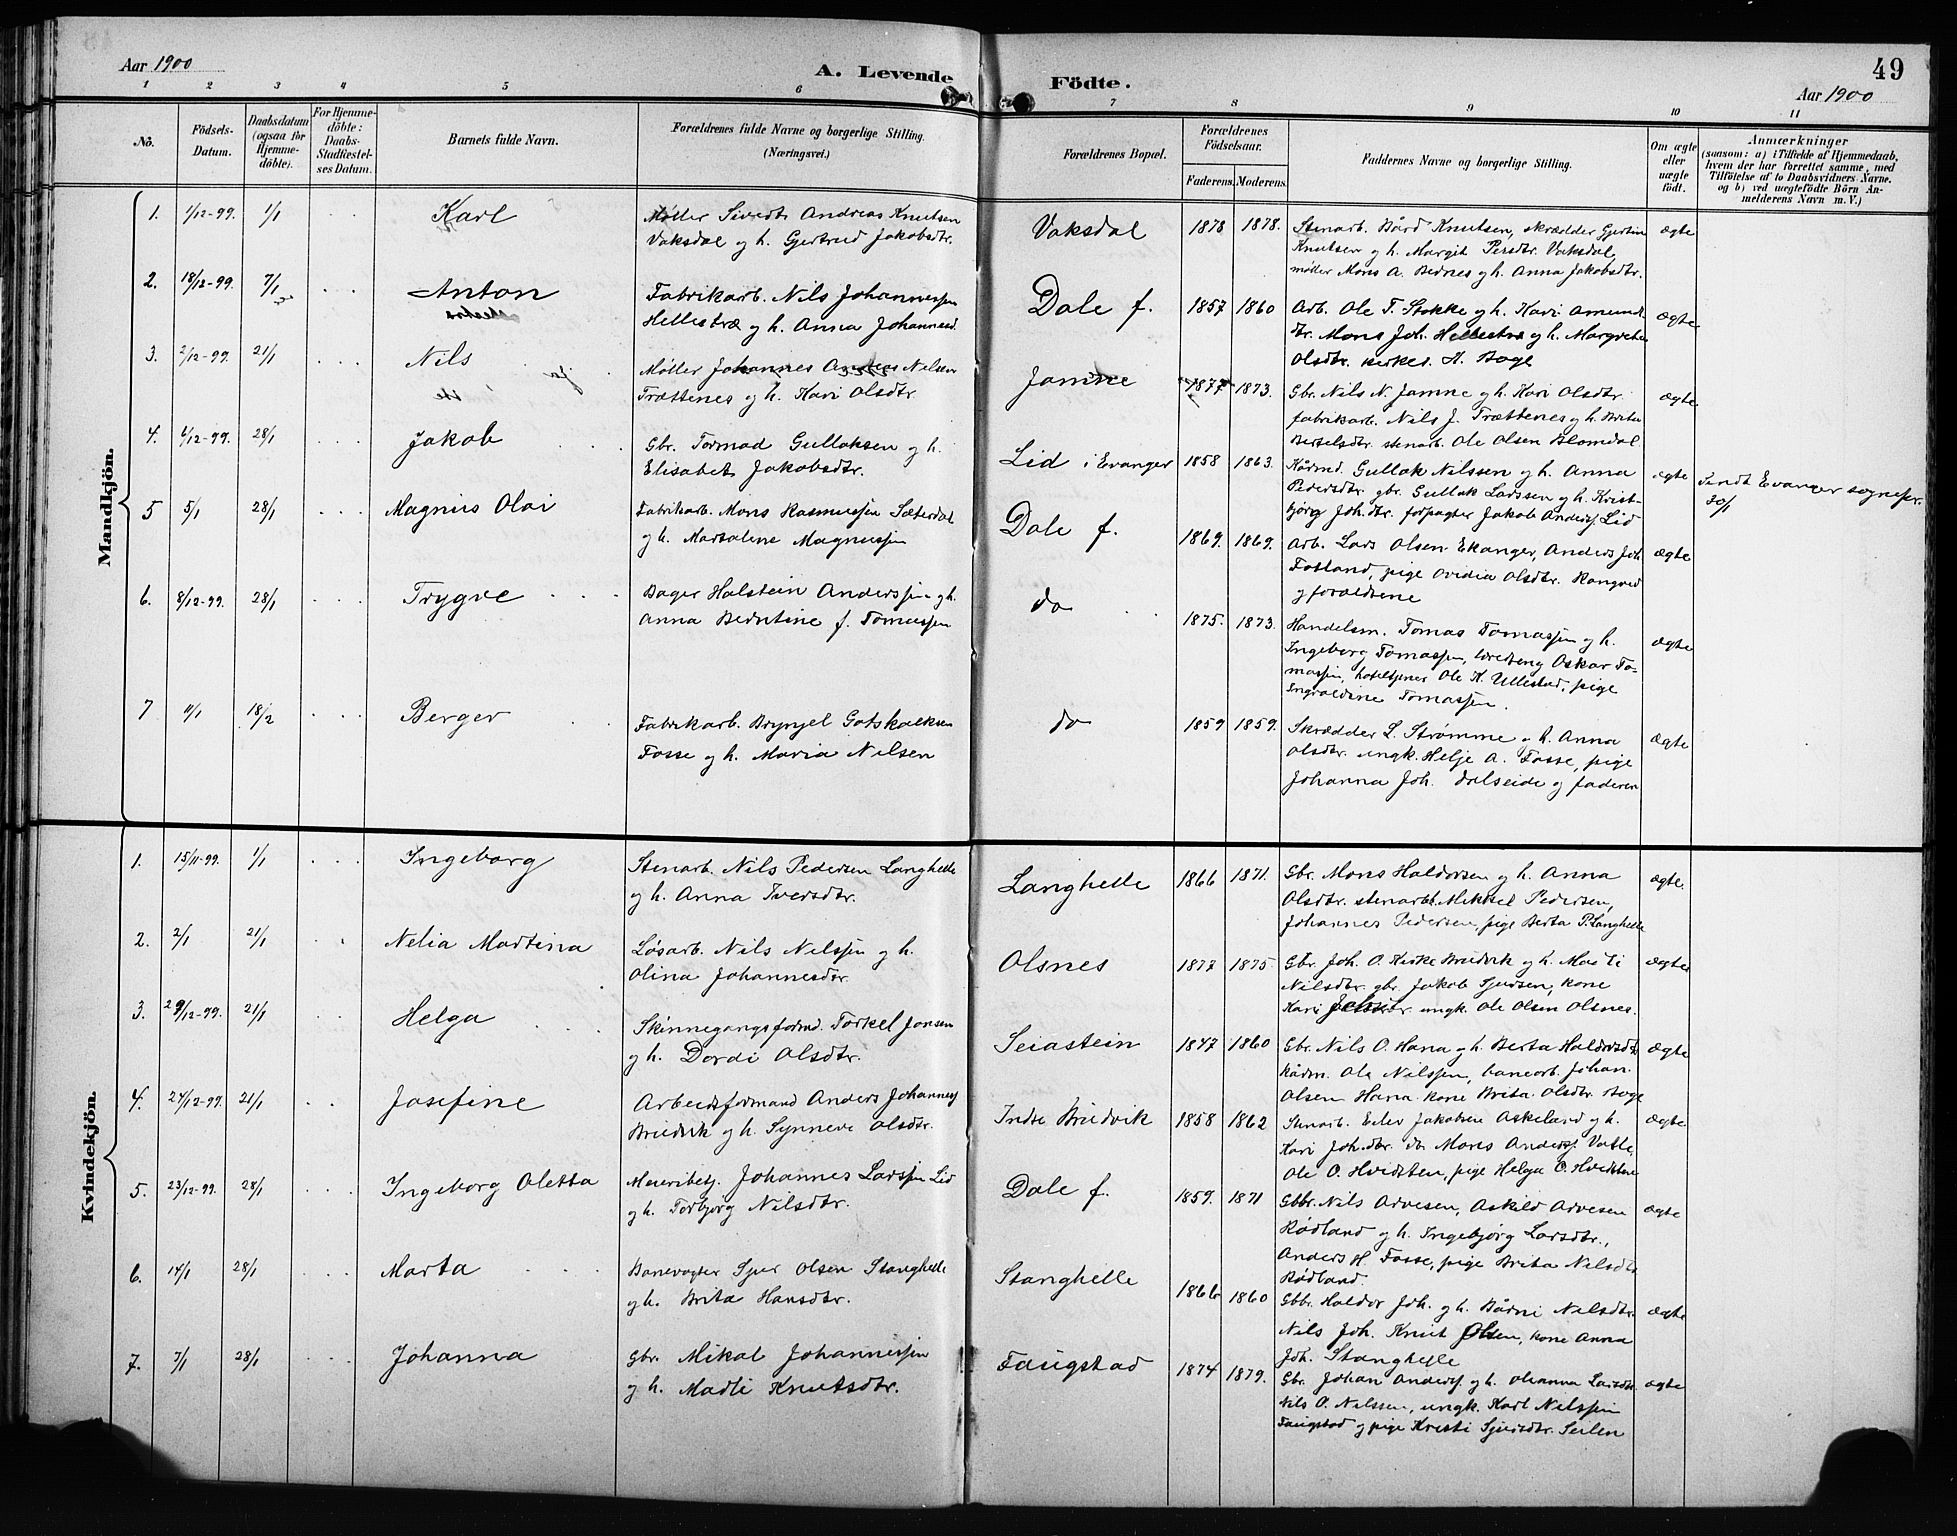 Aar 1900
A. Levende Födte.
49
Aar 1900
1 2 3 4 5 6 7 8 9 10 11
No.
Födsels-
Datum.
Daabsdatum
(ogsaa för
Hjemme-
döbte).
For Hjemme-
döbte:
Daabs-
Stadfæstel-
ses Datum.
Barnets fulde Navn.
Forældrenes fulde Navne og borgerlige Stilling.
(Næringsvei.)
Forældrenes Bopæl.
Forældrenes
Födselsaar.
Faderens. Moderens.
Faddernes Navne og borgerlige Stilling.
Om ægte
eller
uægte
födt.
Anmærkninger
(saasom: a) i Tilfælde af Hjemmedaab,
hvem der har forrettet samme, med
Tilföielse af to Daabsvidners Navne.
og b) ved uægtefödte Börn An-
melderens Navn m. V.)
Mandkjön.
1. 1/12-99. 1/1 Karl
Møller Sivert Andreas Knutsen
Vaksdal og h. Gjertrud Jakobsdtr.
Vaksdal 1878 1878.
Stenarb. Bård Knutsen, skrædder Gjertin
Knutsen og h. Margit Persdtr. Vaksdal,
møller Mons A. Bednes og h. Anna Jakobsdtr.
ægte
2. 18/12-99. 7/1 Anton
Fabrikarb. Nils Johannessen
Hellestræ og h. Anna Johannesd.
Dale f. 1857 1860
Arb. Ole T. Stokke og h. Kari Amund
dtr. Mons Joh. Hellestræ og h. Margrethe
Olsdtr. kirkes. A. Boge
ægte
3. 2/12-99. 21/1 Nils
Møller Johannes Andreas Nilsen
Trættenes og h. Kari Olsdtr.
Jamne 1877 1873.
Gbr. Nils N. Jamne og h. Kari Olsdtr.
fabrikarb. Nils J. Trættenes og h. Brita
Bertelsdtr. stenarb. Ole Olsen Blomdal
ægte
4. 6/12-99. 28/1 Jakob
Gbr. Tormod Gullaksen og h.
Elisabet Jakobsdtr.
Lid i Evanger 1858 1863.
Kårmd. Gullak Nilssen og h. Anna
Pedersdtr. gbr. Gullak Larssen og h. Krist-
bjørg Joh.dtr. forpagter Jakob Anders. Lid
ægte
Sendt Evanger sognepr.
30/1
5 5/1 28/1 Magnus Olai
Fabrikarb. Mons Rasmussen Sæterdal
og h. Martalene Magnussen
Dale f. 1869. 1869.
Arb. Lars Olsen Ekanger, Anders Joh
Fosland, pige Ovidia Olsdtr. Rongved
og forældrene
ægte
6. 8/12-99. 28/1 Trygve
Bager Halstein Anderssen og h.
Anna Berntine f. Tomassen
do 1875. 1873.
Handelsm. Tomas Tomassen og h.
Ingeborg Tomassen, Oskar To-
massen, hoteltjener Ole K. Ullestad, pige
Ingvaldine Tomassen.
ægte
7 11/1 18/2 Berger
Fabrikarb. Brynjel Gotskalksen
Fosse og h. Maria Nilsen
do 1859 1859.
Skrædder L. Strømme og h. Anna
Olsdtr. ungk. Helje A. Fosse, pige
Johanna Joh. Dalseide og faderen
ægte
Kvindekjön.
1. 15/11-99. 1/1 Ingeborg
Stenarb. Nils Pedersen Langhelle
og h. Anna Iversdtr.
Langhelle 1866 1871.
Gbr. Mons Haldorsen og h. Anna
Olsdtr. stenarb. Mikkel Pedersen,
Johannes Pedersen, pige Berta P. Langhelle
ægte.
2. 2/1 21/1 Nelia Martina
Løsarb. Nils Nilssen og h.
Olina Johannesdtr.
Olsnes 1877 1875
Gbr. Joh. O. Kirke Bruvik og h. Marti
Nilsdtr. gbr. Jakob Sjursen, kone
Kari ungk. Ole Olsen Olsnes.
ægte
3. 29/12-99. 21/1 Helga
Skinnegangsformd. Torkel Jonsen
og h. Dordi Olsdtr.
Seiastein 1847 1860
Gbr. Nils O. Hana og h. Berta Haldorsdtr.
Kårm. Ole Nilssen, banearb. Johan.
Olsen Hana kone Brita Olsdtr. Boge
ægte
4. 24/12-99. 21/1 Josefine
Arbeidsformand Anders Johannes
Bruvik og h. Synneve Olsdtr.
Indre Bruvik 1858 1862
Stenarb. Eder Jakobsen Askeland og h.
Kari Joh.dtr. do Mons Anders. Vatle
Ole O. Hvidsten, pige Helga O. Hvidsten
ægte
5. 23/12-99. 28/1 Ingeborg Oletta
Meieribest. Johannes Larssen Lid
og h. Torbjørg Nilsdtr.
Dale f. 1859. 1871
Gbbr. Nils Arvesen, Askild Arvesen
Rødland og h. Ingebjørg Larsdtr.,
Anders H. Fosse, pige Brita Nilsdtr
Rødland.
ægte
6. 14/1 28/1 Marta
Banevogter Sjur Olsen Stanghelle
og h. Brita Hansdtr.
Stanghelle 1866 1860
Gbbr. Haldor Joh. og h. Bårni Nilsdtr.
Nils Joh. Knut Olsen, kone Anna
Joh. Stanghelle
ægte
7. 7/1 28/1 Johanna
Gbr. Mikal Johannessen
og h. Madli Knutsdtr.
Faugstad 1874 1879.
Gbr. Johan Anders. og h. Oleanna Larsdtr
Nils O. Nilssen, ungk. Karl Nilssen
Faugstad og pige Kristi Sjursdtr. Seilen
ægte